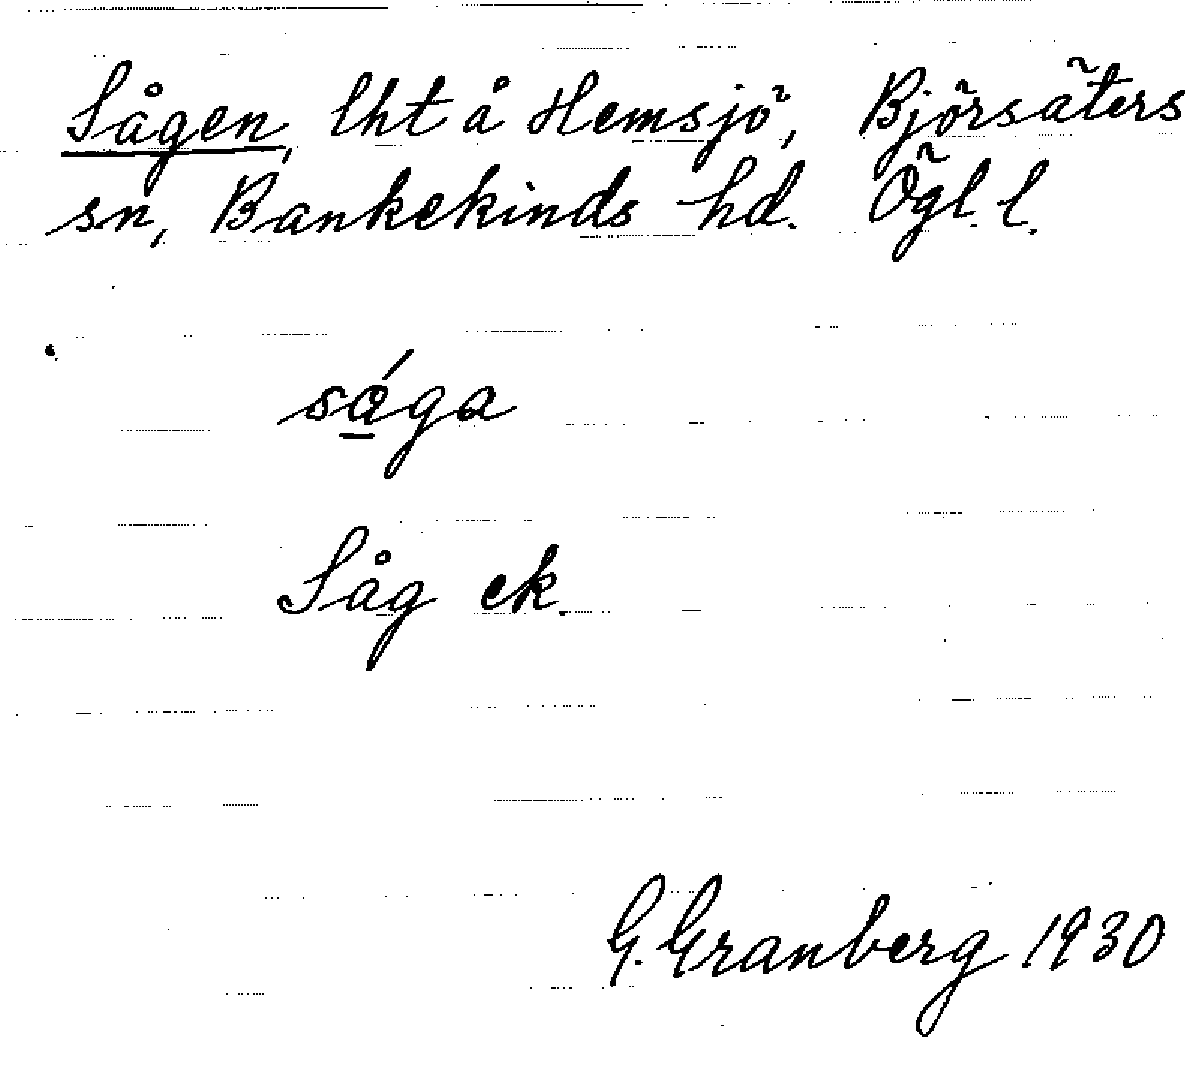 Sågen, lht å Hemsjö, Björsäters
sn, Bankekinds hd. Ögl. l.
sǻga
Såg ek.
G. Granberg 1930